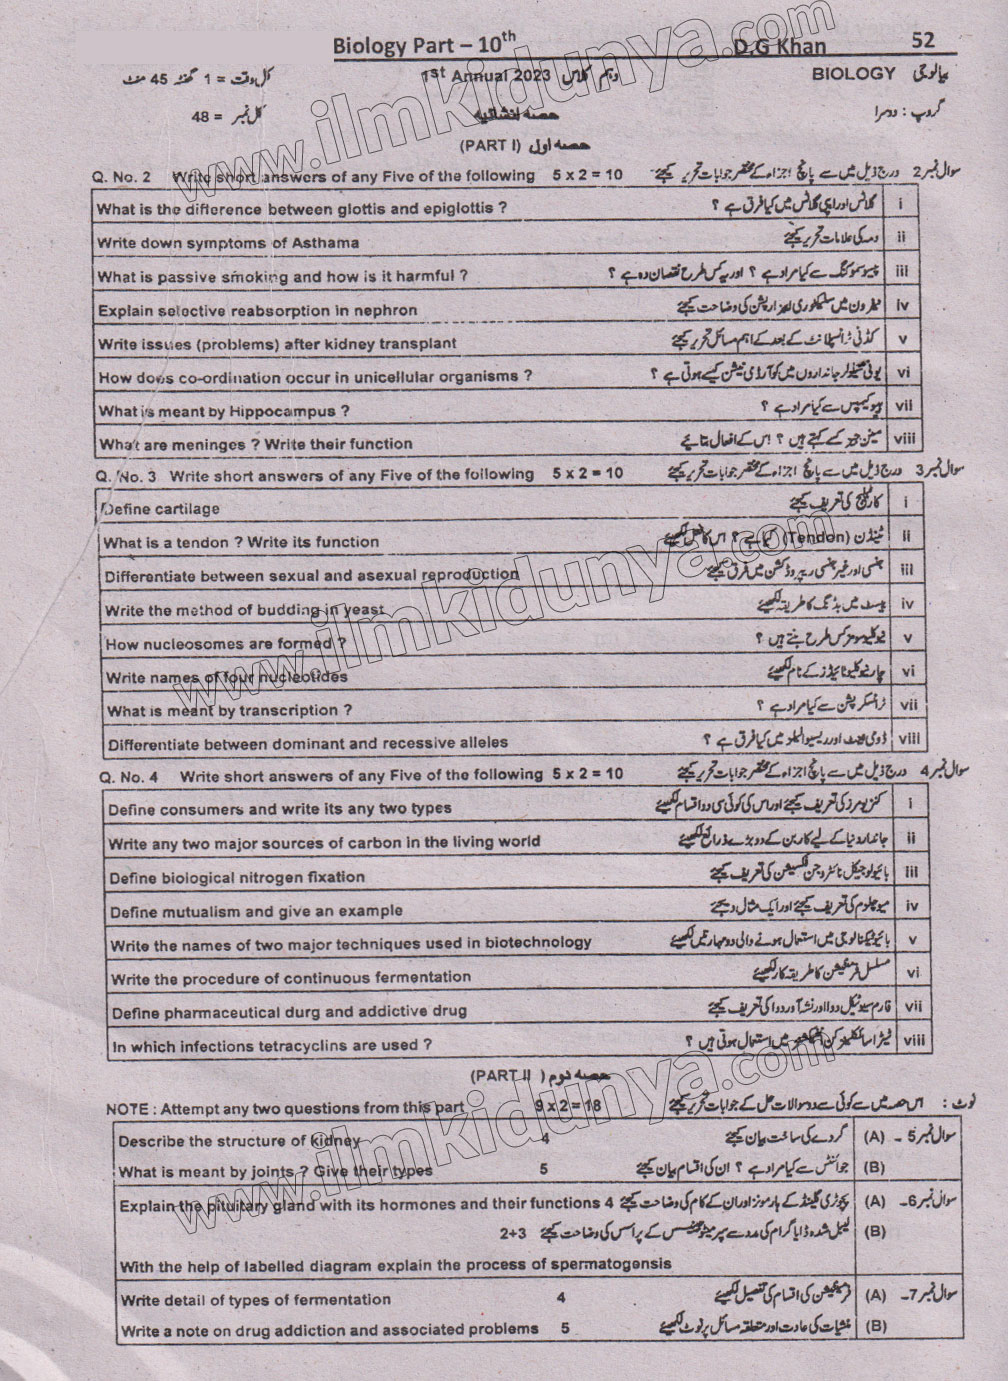 Biology Part – 10th D.G Khan 52
کل وقت = 1 گھنٹہ 45 منٹ 1st Annual 2023 دہم کلاس BIOLOGY بیالوجی
کل نمبر = 48 حصہ انشائیہ گروپ : دوسرا
(PART I) حصہ اول
Q. No. 2 Write short answers of any Five of the following 5 x 2 = 10 درج ذیل میں سے پانچ اجزاء کے مختصر جوابات تحریر کیجئے سوال نمبر 2
What is the difference between glottis and epiglottis ? گلاٹس اور اپی گلاٹس میں کیا فرق ہے ؟ i
Write down symptoms of Asthama دمہ کی علامات تحریر کیجئے ii
What is passive smoking and how is it harmful ? پیسو سموکنگ سے کیا مراد ہے ؟ اور یہ کس طرح نقصان دہ ہے ؟ iii
Explain selective reabsorption in nephron نیفرون میں سلیکٹوری ایبزارپشن کی وضاحت کیجئے iv
Write issues (problems) after kidney transplant کڈنی ٹرانسپلانٹ کے بعد کے اہم مسائل تحریر کیجئے v
How does co-ordination occur in unicellular organisms ? یونی سیلولر جانداروں میں کوآرڈی نیشن کیسے ہوتی ہے ؟ vi
What is meant by Hippocampus ? ہپوکیمپس سے کیا مراد ہے ؟ vii
What are meninges ? Write their function مینن جیز کسے کہتے ہیں ؟ اس کے افعال بتائیے viii
Q. No. 3 Write short answers of any Five of the following 5 x 2 = 10 درج ذیل میں سے پانچ اجزاء کے مختصر جوابات تحریر کیجئے سوال نمبر 3
Define cartilage کارٹلیج کی تعریف کیجئے i
What is a tendon ? Write its function ٹینڈن (Tendon) کیا ہے ؟ اس کا فعل لکھیئے ii
Differentiate between sexual and asexual reproduction جنسی اور غیر جنسی ریپروڈکشن میں فرق کیجئے iii
Write the method of budding in yeast ییسٹ میں بڈنگ کا طریقہ لکھیئے iv
How nucleosomes are formed ? نیوکلیوسومز کس طرح بنتے ہیں ؟ v
Write names of four nucleotides چار نیوکلیوٹائیڈز کے نام لکھیئے vi
What is meant by transcription ? ٹرانسکرپشن سے کیا مراد ہے ؟ vii
Differentiate between dominant and recessive alleles ڈومی نینٹ اور ریسیسو الیلز میں کیا فرق ہے ؟ viii
Q. No. 4 Write short answers of any Five of the following 5 x 2 = 10 درج ذیل میں سے پانچ اجزاء کے مختصر جوابات تحریر کیجئے سوال نمبر 4
Define consumers and write its any two types کنزیومرز کی تعریف کیجئے اور اس کی کوئی سی دو اقسام لکھیئے i
Write any two major sources of carbon in the living world جاندار دنیا کے لیے کاربن کے دو بڑے ذرائع لکھیئے ii
Define biological nitrogen fixation بائیولوجیکل نائٹروجن فکسیشن کی تعریف کیجئے iii
Define mutualism and give an example میوچلزم کی تعریف کیجئے اور ایک مثال دیجئے iv
Write the names of two major techniques used in biotechnology بائیوٹیکنالوجی میں استعمال ہونے والی دو مہارتیں لکھیئے v
Write the procedure of continuous fermentation مسلسل فرمنٹیشن کا طریقہ کار لکھیئے vi
Define pharmaceutical durg and addictive drug فارماسیوٹیکل دوا اور نشہ آور دوا کی تعریف کیجئے vii
In which infections tetracyclins are used ? ٹیٹراسائکلینز کن انفیکشنز میں استعمال ہوتی ہیں ؟ viii
(PART II) حصہ دوم
NOTE : Attempt any two questions from this part 9 x 2 = 18 اس حصہ میں سے کوئی سے دو سوالات حل کے جوابات تحریر کیجئے نوٹ :
Describe the structure of kidney 4 گردے کی ساخت بیان کیجئے (A) سوال نمبر 5 -
What is meant by joints ? Give their types 5 جوائنٹس سے کیا مراد ہے ؟ ان کی اقسام بیان کیجئے (B)
Explain the pituitary gland with its hormones and their functions 4 پچوٹری گلینڈ کے ہارمونز اور ان کے کام کی وضاحت کیجئے (A) سوال نمبر 6-
2+3 لیبل شدہ ڈایا گرام کی مدد سے سپرمیٹوجینیسس کے پراسس کی وضاحت کیجئے (B)
With the help of labelled diagram explain the process of spermatogensis
Write detail of types of fermentation 4 فرمنٹیشن کی اقسام کی تفصیل لکھیئے (A) سوال نمبر 7-
Write a note on drug addiction and associated problems 5 منشیات کی عادت اور متعلقہ مسائل پر نوٹ لکھیئے (B)
www.ilmkidunya.com
www.ilmkidunya.com
www.ilmkidunya.com